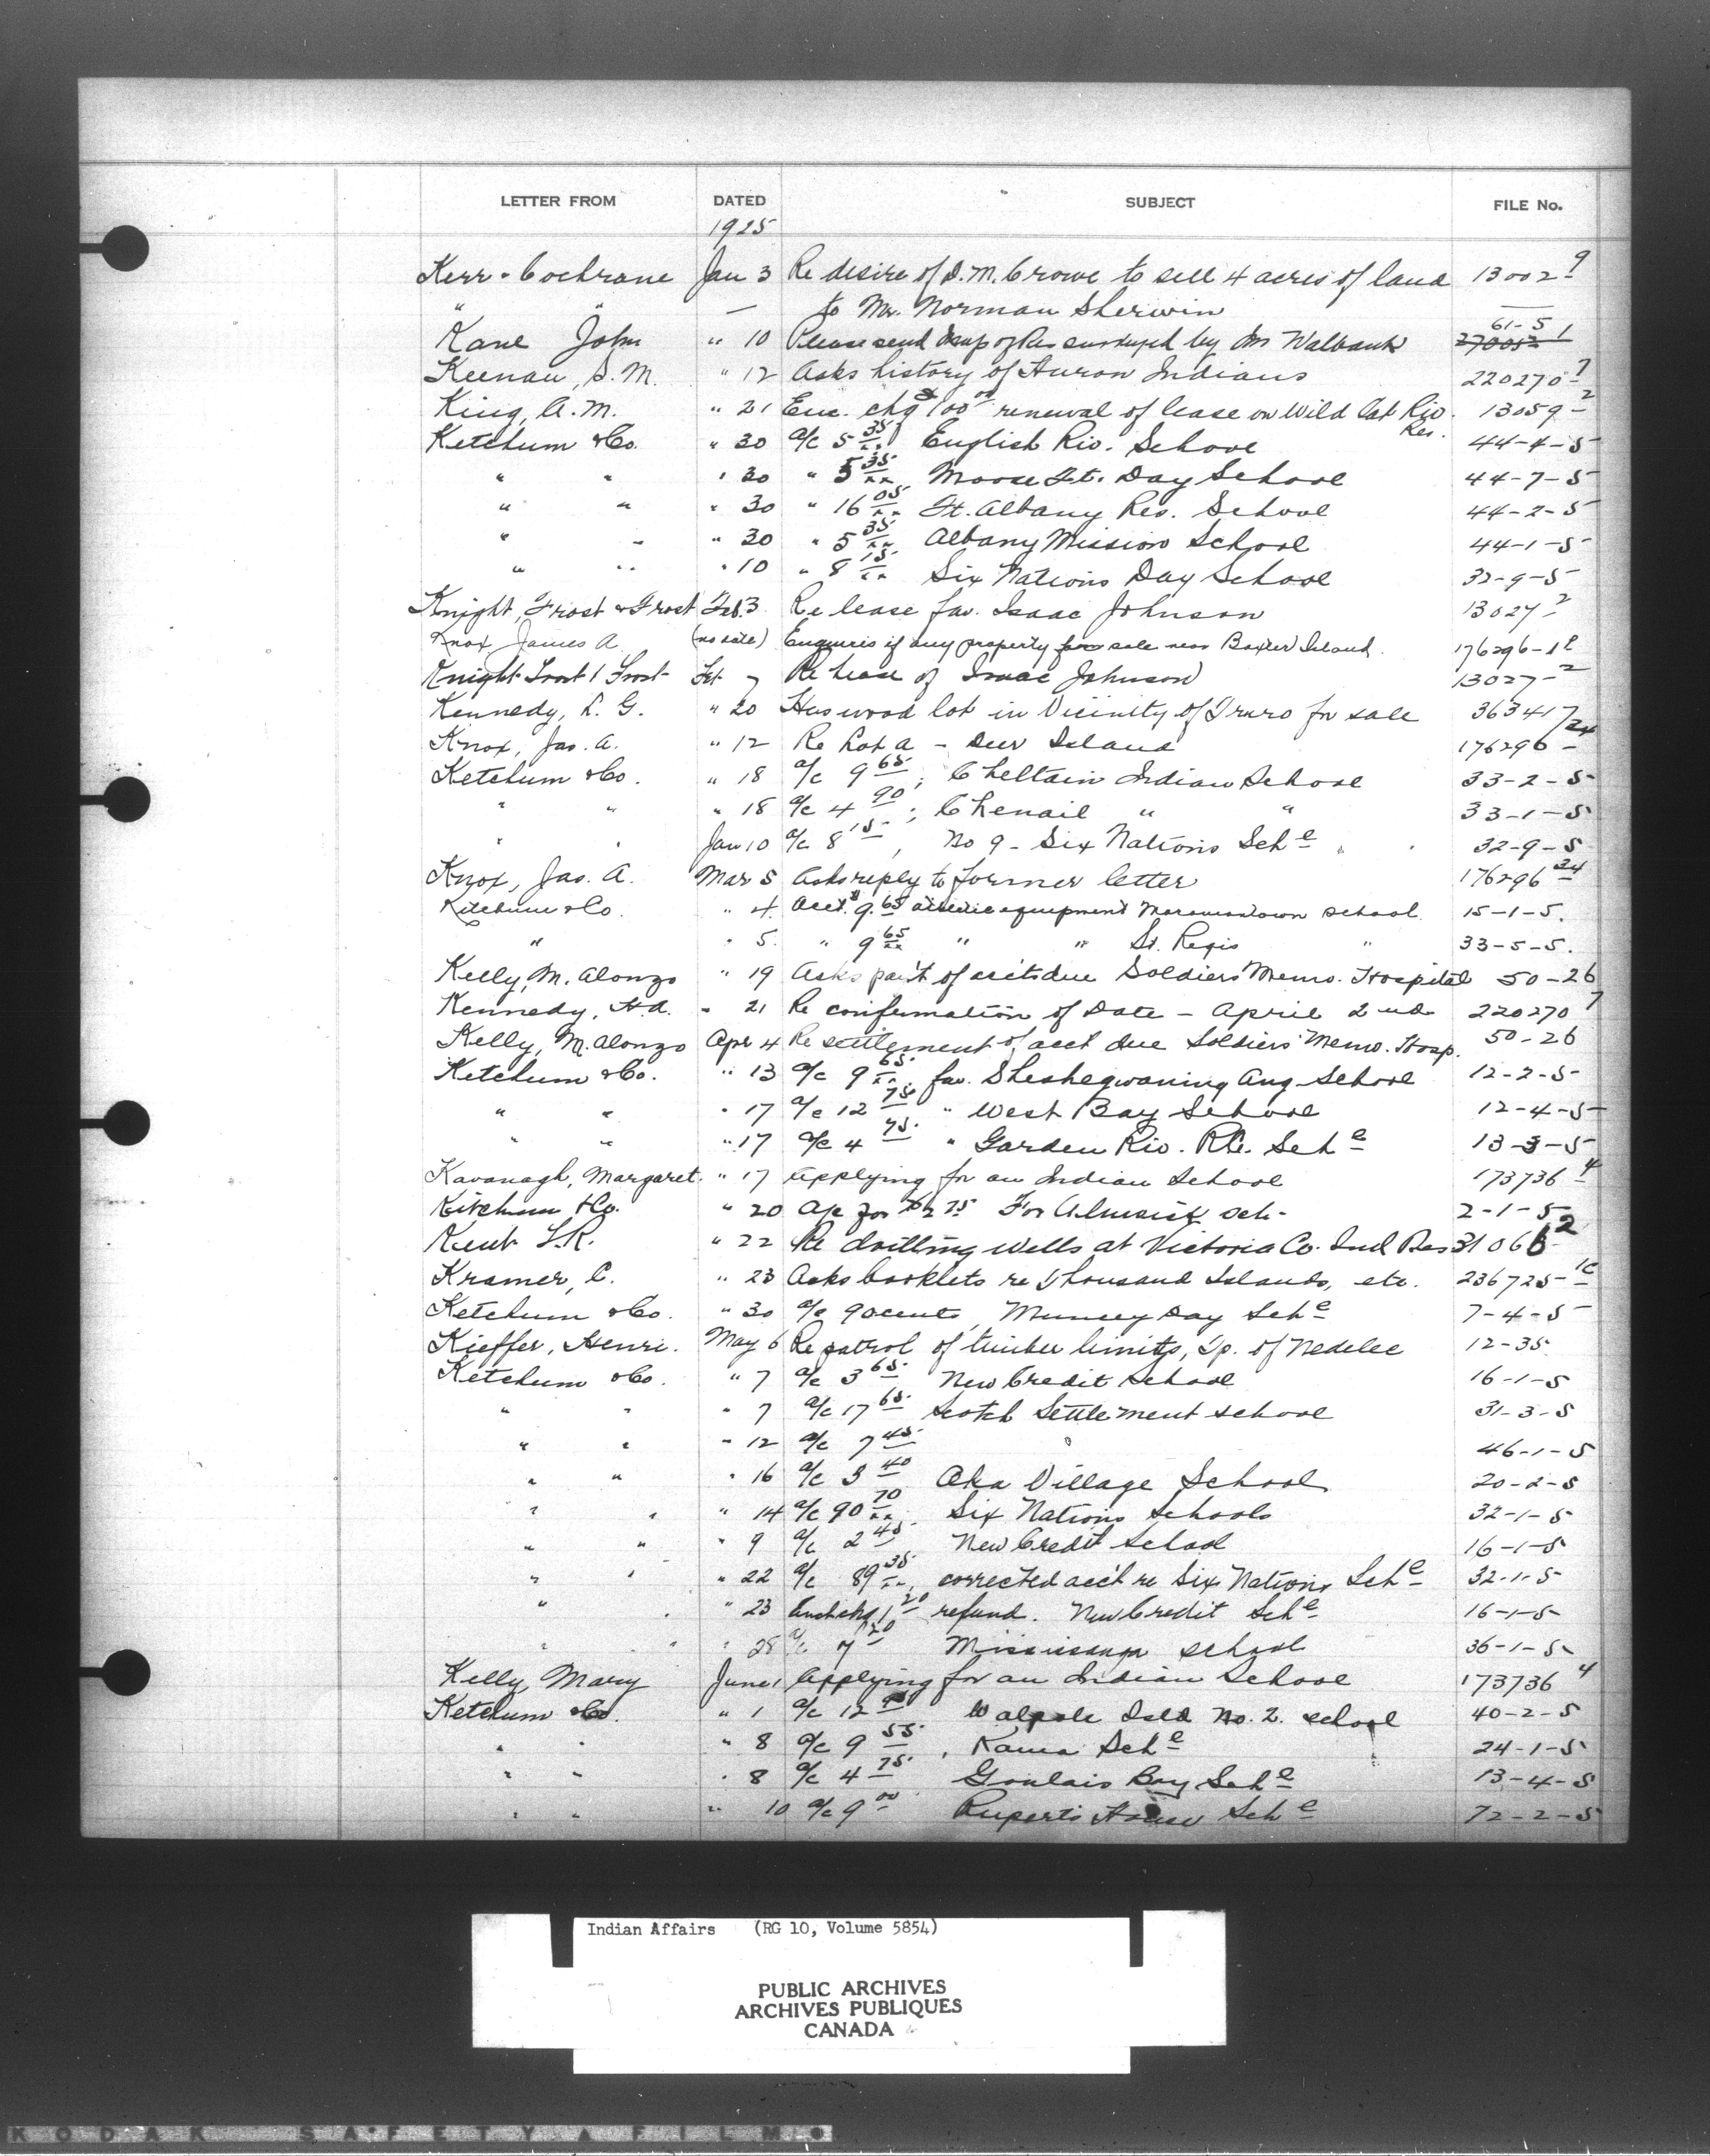 LETTER FROM DATED SUBJECT FILE No.
1925
Kerr & Cochrane Jan 3 Re desire of D.M. Crowe to sell 4 acres of land 13002-9
" " — to Mr. Norman Sherwin —
Kane John " 10 Please send map of Res surveyed by Mr Walbank 61-5 27005-1
Keenan, S.M. " 12 Asks history of Huron Indians 220270-7
King, A.M. " 21 Enc. chq $100.00 renewal of lease on Wild Cat Riv. Res. 13059-2
Ketchum & Co. " 30 a/c 5.35 English Riv. School 44-4-5
" " " 30 " 5.35 Moose Ft. Day School 44-7-5
" " " 30 " 16.05 Ft. Albany Res. School 44-2-5
" " " 30 " 5.35 Albany Mission School 44-1-5
" " " 10 " 8.15 Six Nations Day School 32-9-5
Knight, Frost & Frost Feb. 3 Re lease fav. Isaac Johnson 13027-2
Knox, James A. (no date) Enquires if any property for sale near Baxter Island.
Knight Frost & Frost Feb 7 Re Lease of Isaac Johnson 13027-2
Kennedy, L. G. " 20 Has wood lot in Vicinity of Truro for sale 36341
Knox, Jas. A. " 12 Re Lot A - Deer Island 176296-24
Ketchum & Co. " 18 a/c 9.65, Cheltain Indian School 33-2-5
" " " 18 a/c 4.90; Chenail " " 33-1-5
" " Jan 10 a/c 8.15, No 9 - Six Nations Sch^l " " 32-9-5
Knox, Jas. A. Mar 5 Asks reply to former letter 176296-24
Ketchum & Co. " 4 Acct. $9.65 athletic equipment school 15-1-5.
" " 5. " 9.65 " " St. Regis " 33-5-5.
Kelly, M. Alonzo " 19 Asks pay't of acc'ts due Soldiers Memo. Hospital 50-26
Kennedy, H.A. " 21 Re confirmation of Date - April 2nd 220270-7
Kelly, M. Alonzo Apr 4 Re settlement of acct due Soldiers Memo. Hosp. 50-26
Ketchum & Co. " 13 a/c 9.65 fav. Sheshegwaning Ang School 12-2-5
" " " 17 a/c 12.75 " West Bay School 12-4-5
" " " 17 a/c 4.75 " Garden Riv. R.C. Sch^l 13-3-5
Kavanagh, Margaret. " 17 Applying for an Indian School 173736-4
Ketchum & Co. " 20 a/c for $2.75 For sch- 2-1-5
Kent L.R. " 22 Re drilling wells at Victoria Co. Ind Res 31066-2
Kramer, C. " 23 Asks booklets re Thousand Islands, etc. 236725-1C
Ketchum & Co. " 30 a/c 90 cents, Muncey Day Sch^l 7-4-5
Kieffer, Henri. May 6 Re patrol of timber limits, Tp. of Nedelec 12-35
Ketchum & Co. " 7 a/c 3.65 New Credit School 16-1-5
" " " 7 a/c 17.65 Scotch Settlement school 31-3-5
" " " 12 a/c 7.45 46-1-5
" " " 16 a/c 3.40 Oka Village School 20-2-5
" " " 14 a/c 90.70 Six Nations Schools 32-1-5
" " " 9 a/c 2.45 New Credit School 16-1-5
" " " 22 a/c 89.35, corrected acc't re Six Nations Sch^l 32-1-5
" " " 23 chq 1.20 refund. New Credit Sch^l 16-1-5
" " " 28 a/c 7.20 Mississauga school 36-1-5
Kelly, Mary June 1 Applying for an Indian School 173736-4
Ketchum & Co. " 1 a/c 12 Walpole Isld No. 2. school 40-2-5
" " " 8 a/c 9.55, Sch^l 24-1-5
" " " 8 a/c 4.75 Goulais Bay Sch^l 13-4-5
" " " 10 a/c 9.00 Ruperts House Sch^l 72-2-5
Indian Affairs (RG 10, Volume 5854)
PUBLIC ARCHIVES
ARCHIVES PUBLIQUES
CANADA
KODAK SAFETY FILM